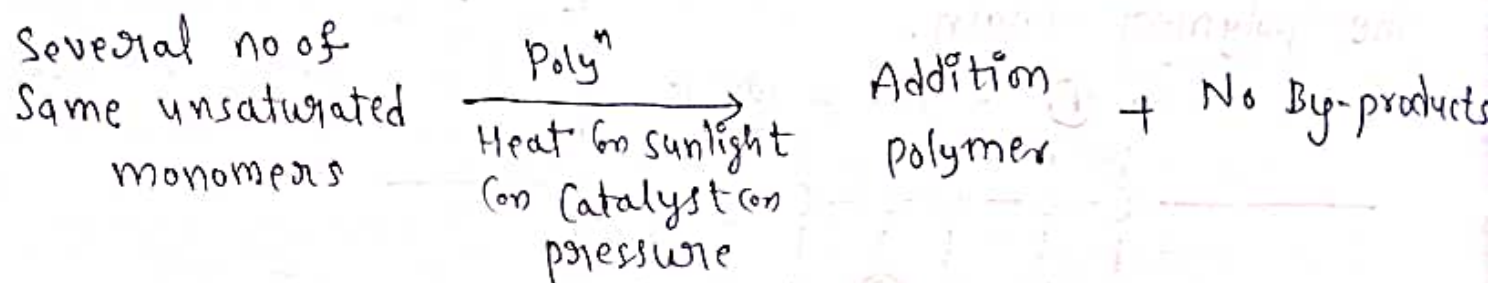 Several no of
Same unsaturated
monomers
Polyⁿ
Heat (or) sunlight
(or) Catalyst (or)
pressure
Addition
polymer
+ No By-products